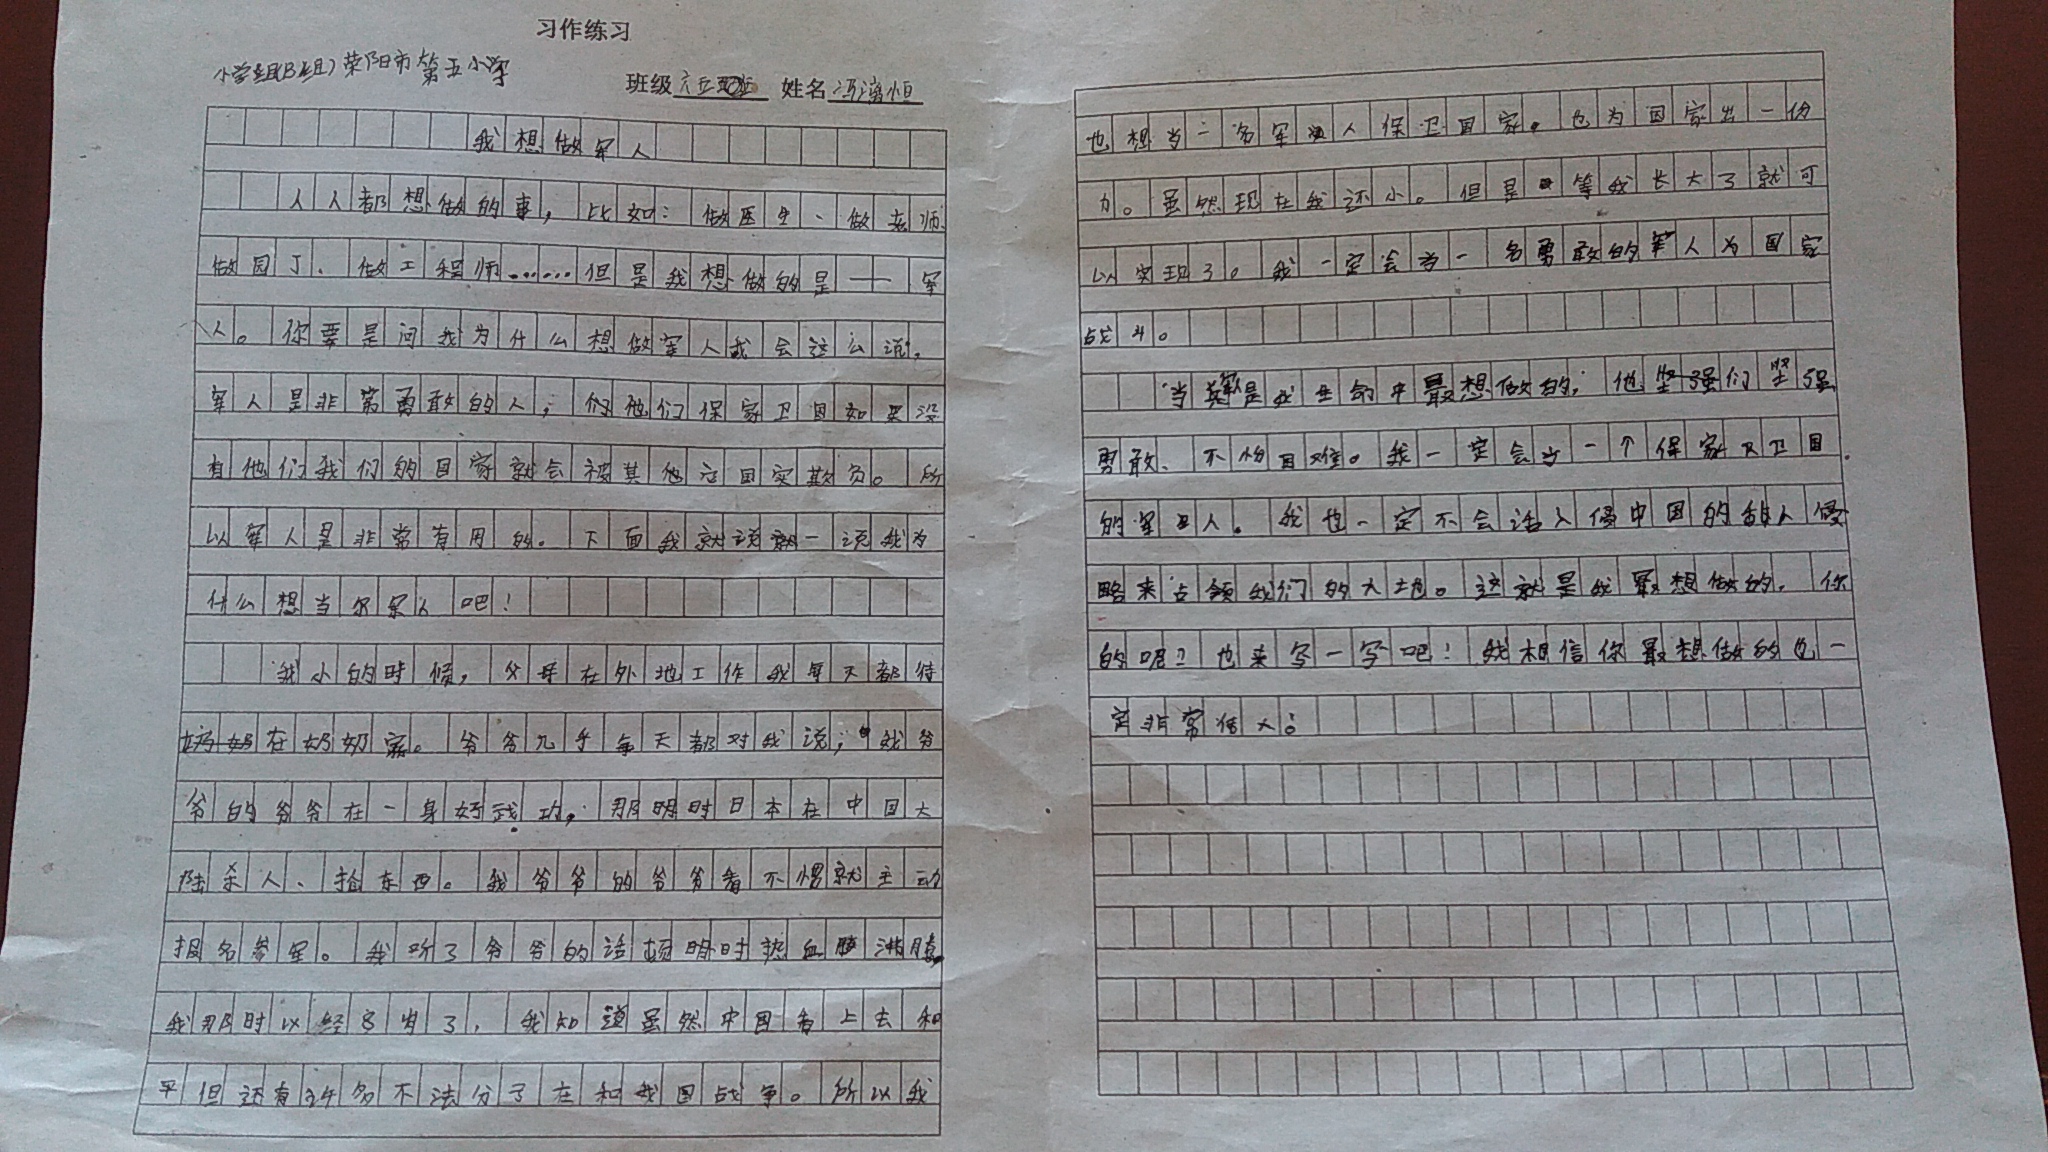 习作练习
小学组(B组)荥阳市第五小学
班级六五班 姓名冯满恒
我想做军人
人人都想做的事，比如：做医生、做老师、
做园丁、做工程师……但是我想做的是——军
人。你要是问我为什么想做军人我会这么说，
军人是非常勇敢的人，他们保家卫国如果没
有他们我们的国家就会被其他国家欺负。所
以军人是非常有用的。下面我就说一说我为
什么想当军人吧！
我小的时候，父母在外地工作我每天都待
在奶奶家。爷爷几乎每天都对我说，我爷
爷的爷爷在一身好武功，那时日本在中国大
陆杀人、抢东西。我爷爷的爷爷看不惯就主动
报名参军。我听了爷爷的话顿时热血沸腾，
我那时以经8岁了，我知道虽然中国看上去和
平但还有许多不法分子在和我国战争。所以我
也想当一名军人保卫国家。也为国家出一份
力。虽然现在我还小。但是等我长大了就可
以实现了。我一定会当一名勇敢的军人为国家
战斗。
当军人是我生命中最想做的，他们坚强
勇敢、不怕困难。我一定会当一个保家卫国
的军人。我也一定不会让入侵中国的敌人侵
略来占领我们的大地。这就是我最想做的，你
的呢？也来写一写吧！我相信你最想做的也一
定非常伟大！